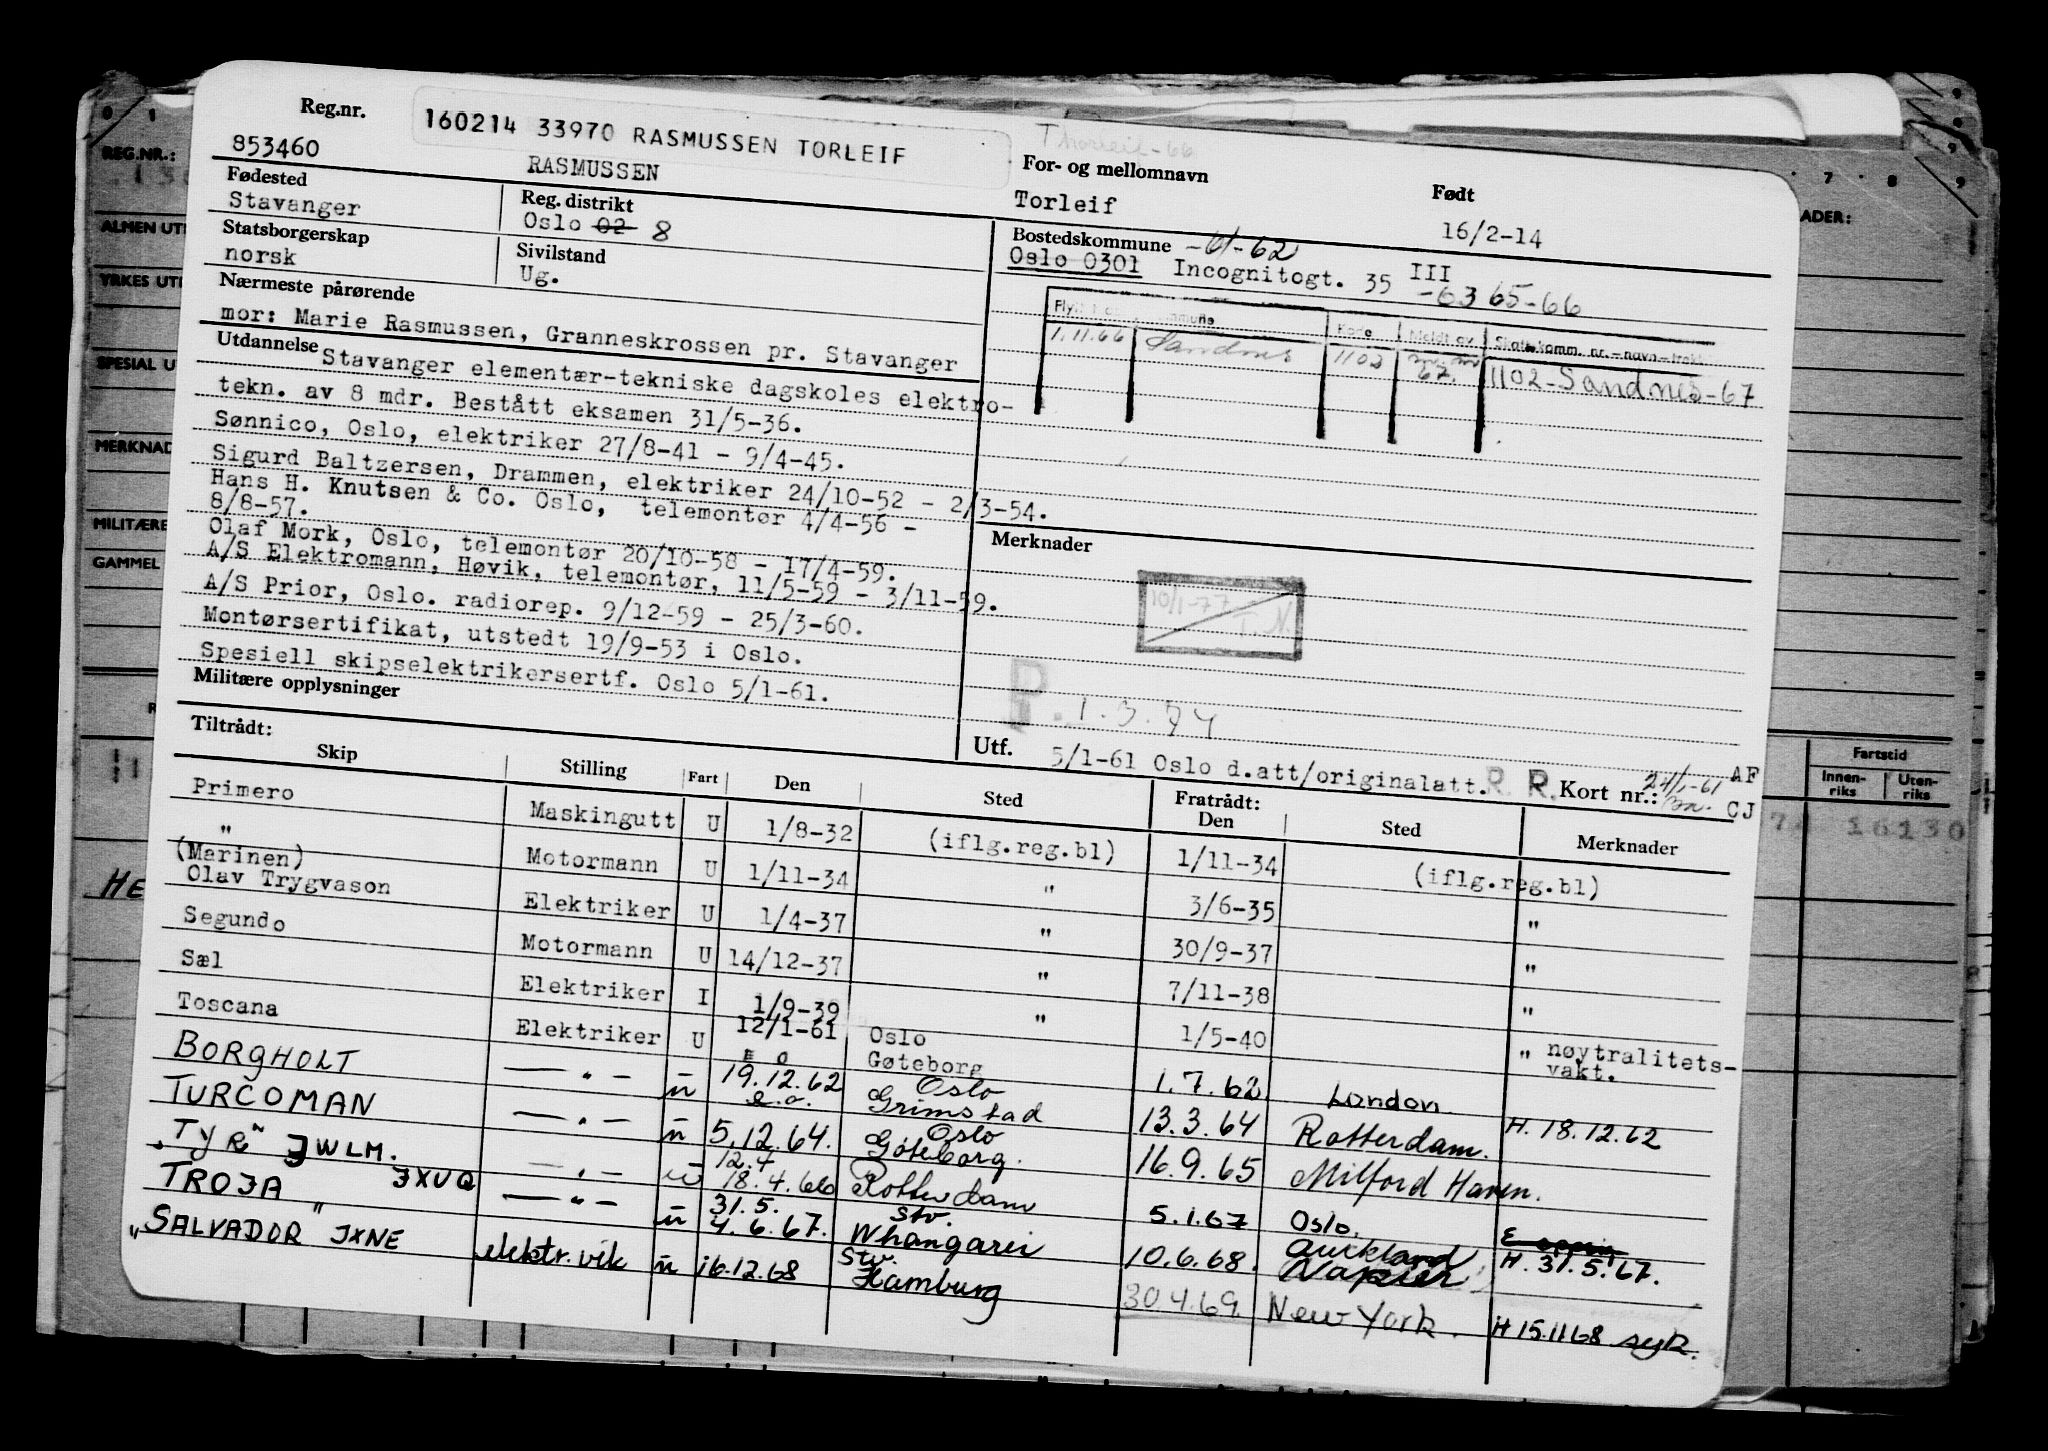 Reg.nr.
160214 33970 RASMUSSEN TORLEIF
Thorleif-66
853460
RASMUSSEN
For- og mellomnavn
Født
Fødested
Reg. distrikt
Torleif
16/2-14
Stavanger
Oslo 02 8
Bostedskommune -61-62
Statsborgerskap
Sivilstand
Oslo 0301 Incognitogt. 35 III
norsk
Ug.
-63 65-66
Nærmeste pårørende
mor: Marie Rasmussen, Granneskrossen pr. Stavanger
Kode Meldt av Skattekomm. nr.-navn-
1.11.66 Sandnes 1102 67. 1102-Sandnes-67
Utdannelse Stavanger elementær-tekniske dagskoles elektro-
tekn. av 8 mdr. Bestått eksamen 31/5-36.
Sønnico, Oslo, elektriker 27/8-41 - 9/4-45.
Sigurd Baltzersen, Drammen, elektriker 24/10-52 - 2/3-54.
Hans H. Knutsen & Co. Oslo, telemontør 4/4-56 -
8/8-57.
Olaf Mork, Oslo, telemontør 20/10-58 - 17/4-59.
A/S Elektromann, Høvik, telemontør, 11/5-59 - 3/11-59.
A/S Prior, Oslo. radiorep. 9/12-59 - 25/3-60.
Montørsertifikat, utstedt 19/9-53 i Oslo.
Spesiell skipselektrikersertf. Oslo 5/1-61.
Militære opplysninger
Merknader
10/1-77
T.N.
P. 1.3.74
Utf. 5/1-61 Oslo d.att/originalatt. R. R. Kort nr.: 24/1-61 AF
CJ
Tiltrådt:
Skip Stilling Fart Den Sted Fratrådt: Den Sted Merknader
Primero Maskingutt U 1/8-32 (iflg.reg.bl) 1/11-34 (iflg.reg.bl)
" Motormann U 1/11-34 " 3/6-35 "
(Marinen)
Olav Trygvason Elektriker U 1/4-37 " 30/9-37 "
Segundo Motormann U 14/12-37 " 7/11-38 "
Sæl Elektriker I 1/9-39 " 1/5-40 " nøytralitets-
vakt.
Toscana Elektriker U 12/1-61 Oslo
Gøteborg 1.7.62 London
BORGHOLT — " — u 19.12.62 Oslo
e.o. Grimstad 13.3.64 Rotterdam. H. 18.12.62
TURCOMAN — " — u 5.12.64. Oslo
Göteborg. 16.9.65 Milford Haven.
"TYR" JWLM. — " — u 12.4
18.4.66 Rotterdam 5.1.67 Oslo.
TROJA JXUQ — " — u 31.5. Stv.
4.6.67. Whangarei 10.6.68. Auckland
Napier H. 31.5.67.
"SALVADOR" JXNE elektr. vik u 16.12.68 Stv.
Hamburg 30.4.69. New York. H 15.11 68 syk.
REG.NR.:
ALMEN UT
YRKES UT
SPESIAL U
MERKNAD
MILITÆRE
GAMMEL
HE
ADER:
7 8 9
Fartstid
Innen-
riks
Uten-
riks
74 16130